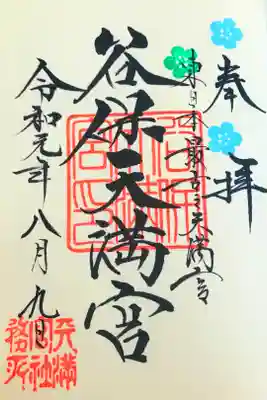 奉拝
東日本最古之天満宮
谷保天満宮
令和元年八月九日
天満宮社務所